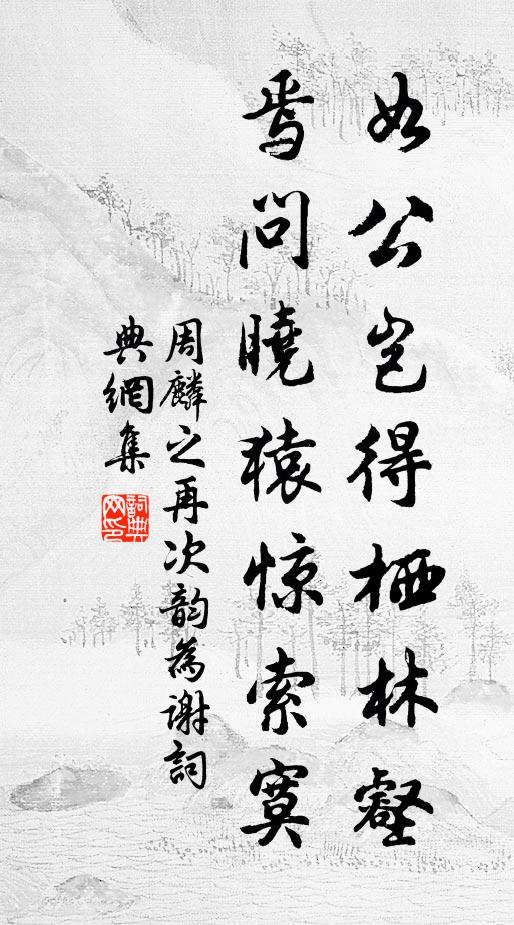 如公岂得栖林壑
焉问晓猿惊索寞
周麟之再次韵为谢词
典网集
词典网印